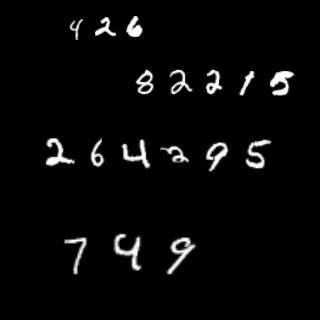 426
82215
264295
749